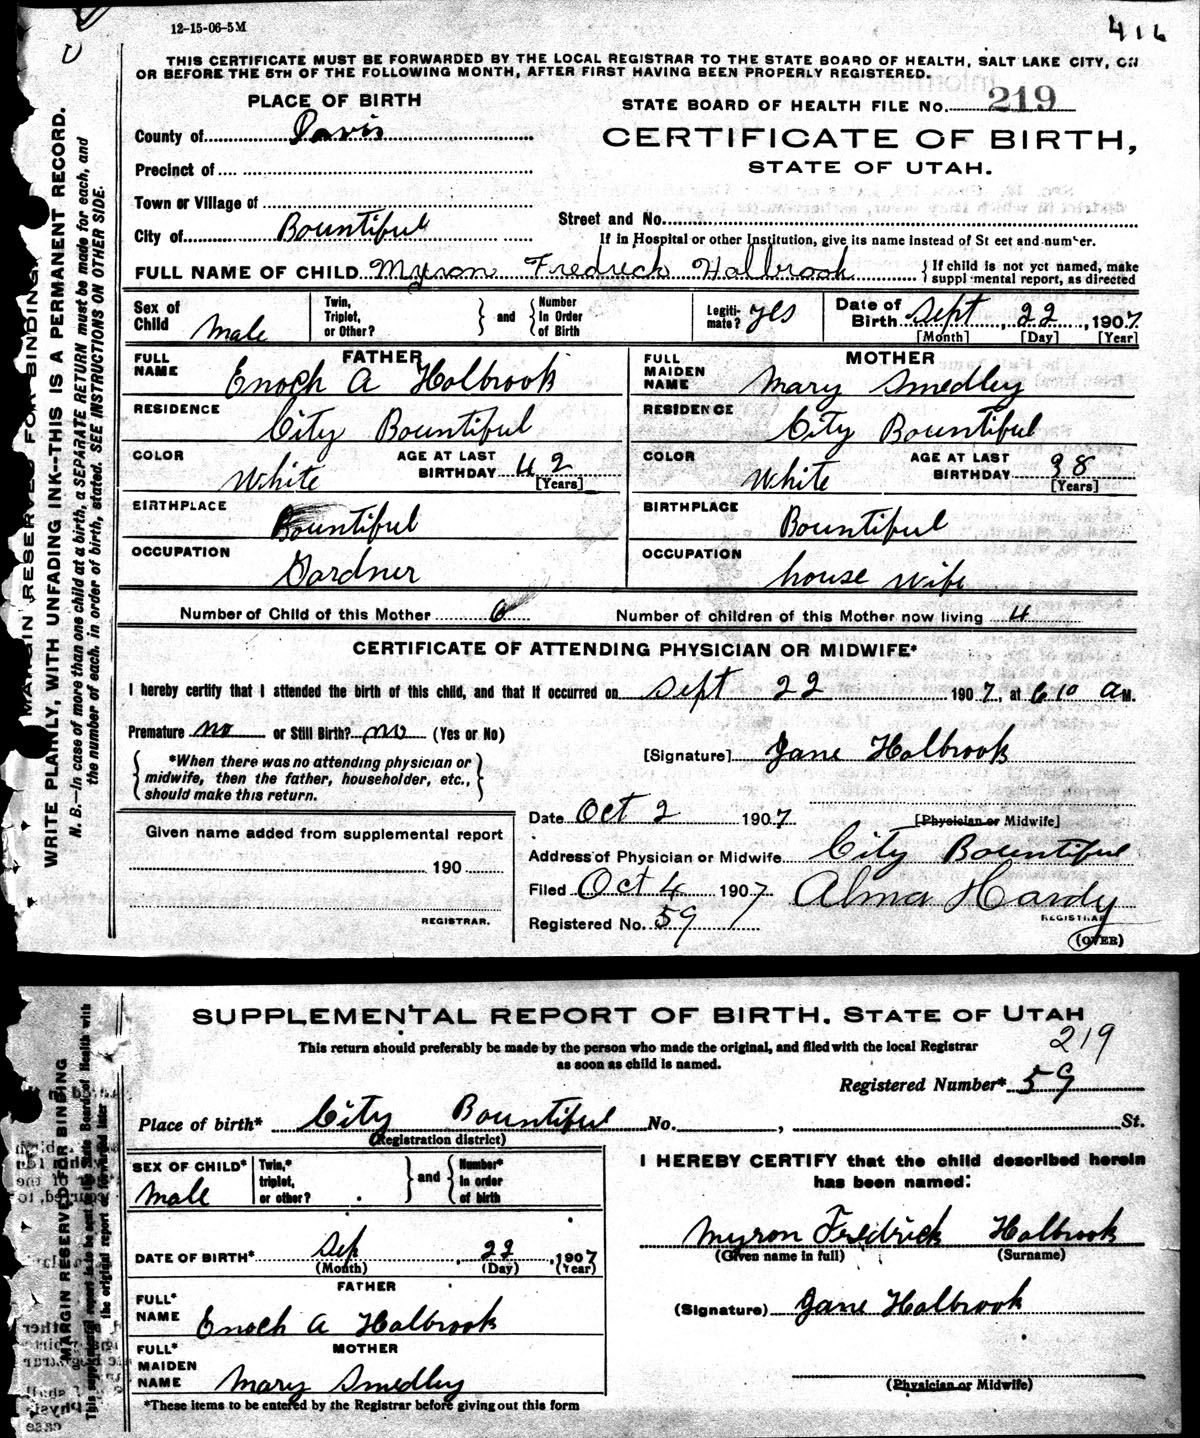 12-15-06-5M
416
THIS CERTIFICATE MUST BE FORWARDED BY THE LOCAL REGISTRAR TO THE STATE BOARD OF HEALTH, SALT LAKE CITY, ON
OR BEFORE THE 5TH OF THE FOLLOWING MONTH, AFTER FIRST HAVING BEEN PROPERLY REGISTERED.
MARGIN RESERVED FOR BINDING.
WRITE PLAINLY, WITH UNFADING INK--THIS IS A PERMANENT RECORD.
N. B.—In case of more than one child at a birth, a SEPARATE RETURN must be made for each, and
the number of each, in order of birth, stated. SEE INSTRUCTIONS ON OTHER SIDE.
PLACE OF BIRTH
STATE BOARD OF HEALTH FILE No. 219
County of Davis
CERTIFICATE OF BIRTH,
STATE OF UTAH.
Precinct of
Town or Village of
Street and No.
City of Bountiful
If in Hospital or other Institution, give its name instead of St eet and number.
FULL NAME OF CHILD Myron Fredrick Holbrook { If child is not yct named, make
suppl mental report, as directed
Sex of Child Male
Twin, Triplet, or Other? } and { Number In Order of Birth
Legiti-mate? yes
Date of Birth Sept, 22, 1907
[Month] [Day] [Year]
FATHER
FULL NAME Enoch A Holbrook
MOTHER
FULL MAIDEN NAME Mary Smedley
RESIDENCE City Bountiful
RESIDENCE City Bountiful
COLOR White AGE AT LAST BIRTHDAY 42 [Years]
COLOR White AGE AT LAST BIRTHDAY 38 [Years]
BIRTHPLACE Bountiful
BIRTHPLACE Bountiful
OCCUPATION Gardner
OCCUPATION house wife
Number of Child of this Mother 6 Number of children of this Mother now living 4
CERTIFICATE OF ATTENDING PHYSICIAN OR MIDWIFE*
I hereby certify that I attended the birth of this child, and that it occurred on Sept 22 1907, at 6 10 A M.
Premature no or Still Birth? no (Yes or No)
*When there was no attending physician or
midwife, then the father, householder, etc.,
should make this return.
[Signature] Jane Holbrook
Date Oct 2 1907
[Physician or Midwife]
Given name added from supplemental report
190
REGISTRAR.
Address of Physician or Midwife City Bountiful
Filed Oct 4 1907 Alma Hardy
REGISTRAR
Registered No. 59
(OVER)
SUPPLEMENTAL REPORT OF BIRTH. STATE OF UTAH
This return should preferably be made by the person who made the original, and filed with the local Registrar
as soon as child is named.
219
Registered Number* 59
MARGIN RESERVED FOR BINDING
Place of birth* City Bountiful No. , St.
(Registration district)
SEX OF CHILD* Male
Twin,* triplet, or other? } and { Number* in order of birth
I HEREBY CERTIFY that the child described herein
has been named:
Myron Fredrick Holbrook
(Given name in full) (Surname)
DATE OF BIRTH* Sep 22, 1907
(Month) (Day) (Year)
FATHER
FULL* NAME Enoch A Holbrook
(Signature) Jane Holbrook
MOTHER
FULL* MAIDEN NAME Mary Smedley
(Physician or Midwife)
*These items to be entered by the Registrar before giving out this form